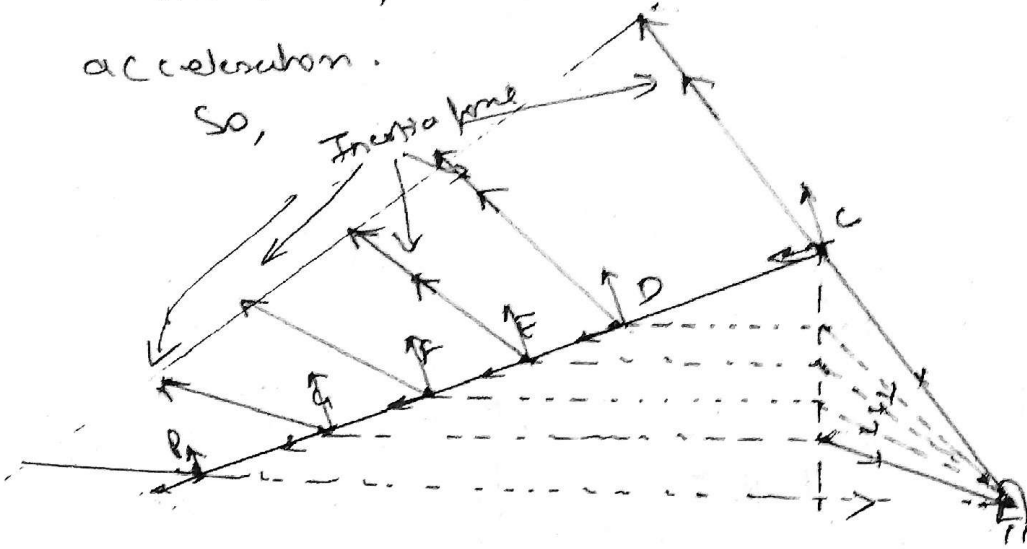 acceleration.
So,
Inertia force
C
D
E
F
G
P